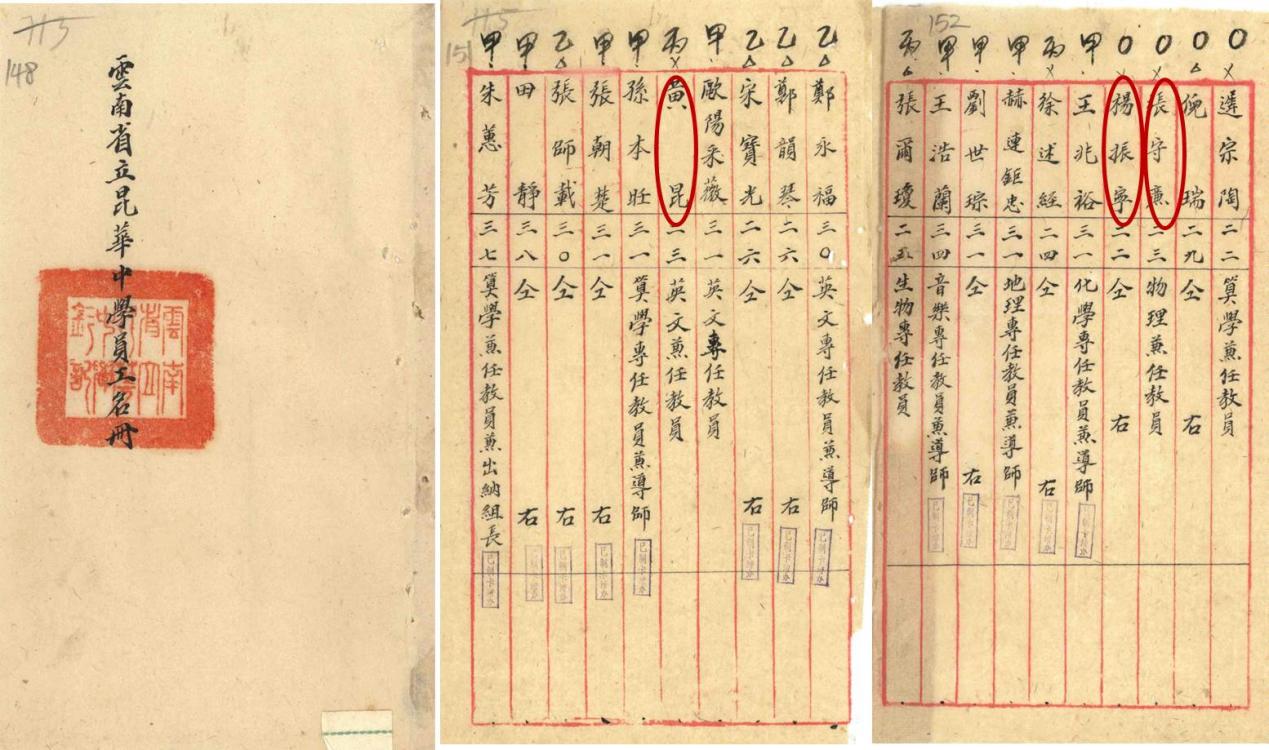 715
148
雲南省立昆華中學員工名冊
715
151
乙 △ 鄭永福 三〇 英文專任教員兼導師
乙 △ 鄭韻琴 二六 仝右
乙 △ 宋寶光 二六 仝右
甲 歐陽采薇 三一 英文專任教員
丙 × 黃昆 二三 英文兼任教員
甲 孫本旺 三一 算學專任教員兼導師
甲 張朝楚 三一 仝右
乙 △ 張師載 三〇 仝右
甲 田靜 三八 仝右
甲 朱蕙芳 三七 算學兼任教員兼出納組長
152
〇 × 宗陶 二二 算學兼任教員
〇 △ 倪瑞 二九 仝右
〇 × 張守廉 二三 物理兼任教員
〇 × 楊振寧 二二 仝右
甲 王兆裕 三一 化學專任教員兼導師
丙 × 徐述經 二四 仝右
甲 赫連鉅忠 三一 地理專任教員兼導師
甲 劉世琮 三一 仝右
甲 王浩蘭 三四 音樂專任教員兼導師
丙 △ 張爾瓊 二五 生物專任教員